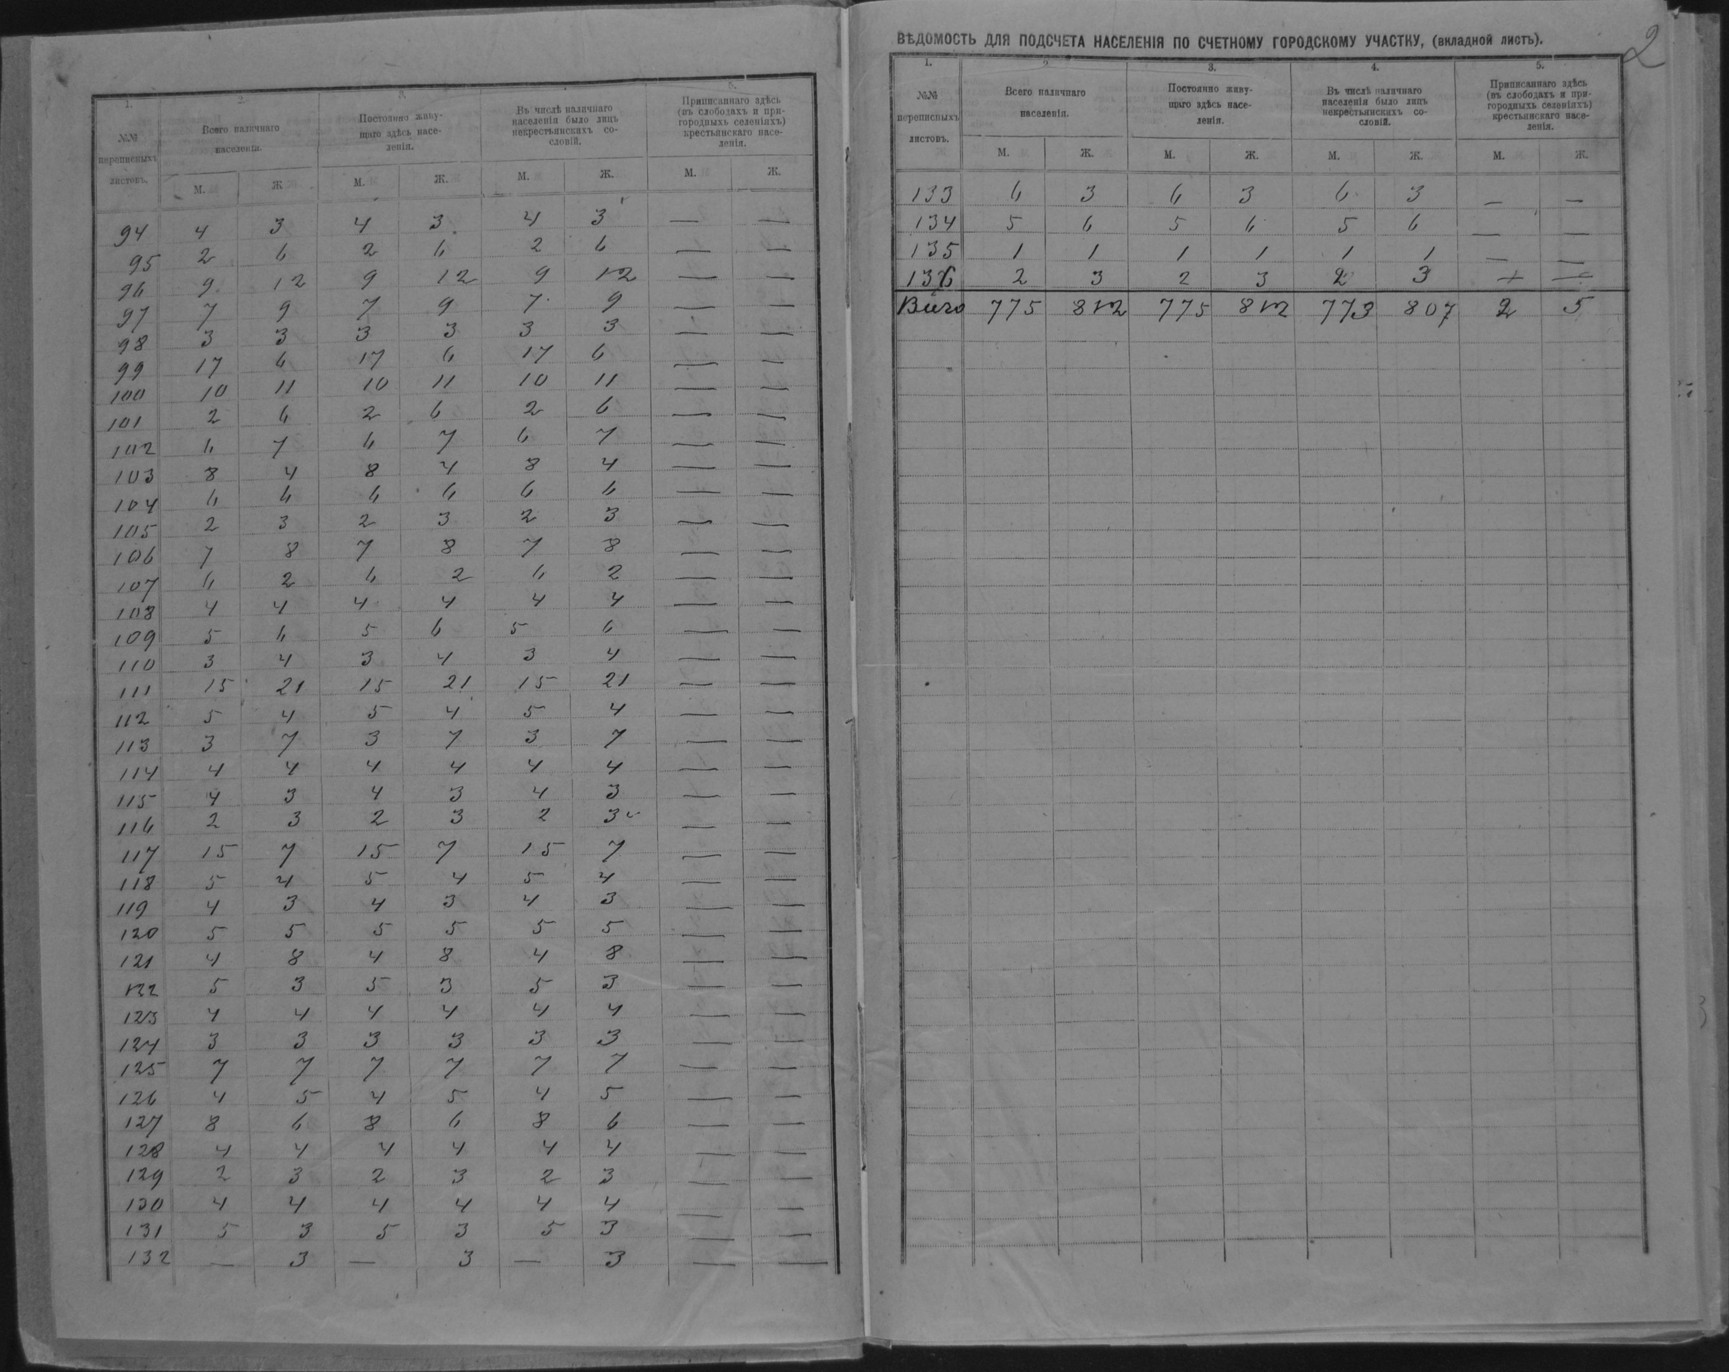 1. 2. 3. 6.
№№ переписныхъ листовъ. Всего наличнаго населенія. Постоянно живу-щаго здѣсь насе-ленія. Въ числѣ наличнаго населенія было лицъ некрестьянскихъ со-словій. Приписаннаго здѣсь (въ слободахъ и при-городныхъ селеніяхъ) крестьянскаго насе-ленія.
М. Ж М. Ж. М. Ж. М. Ж.
94 4 3 4 3 4 3 — —
95 2 6 2 6 2 6 — —
96 9 12 9 12 9 12 — —
97 7 9 7 9 7 9 — —
98 3 3 3 3 3 3 — —
99 17 6 17 6 17 6 — —
100 10 11 10 11 10 11 — —
101 2 6 2 6 2 6 — —
102 6 7 6 7 6 7 — —
103 8 4 8 4 8 4 — —
104 6 6 6 6 6 6 — —
105 2 3 2 3 2 3 — —
106 7 8 7 8 7 8 — —
107 6 2 6 2 6 2 — —
108 4 4 4 4 4 4 — —
109 5 6 5 6 5 6 — —
110 3 4 3 4 3 4 — —
111 15 21 15 21 15 21 — —
112 5 4 5 4 5 4 — —
113 3 7 3 7 3 7 — —
114 4 4 4 4 4 4 — —
115 4 3 4 3 4 3 — —
116 2 3 2 3 2 3 — —
117 15 7 15 7 15 7 — —
118 5 4 5 4 5 4 — —
119 4 3 4 3 4 3 — —
120 5 5 5 5 5 5 — —
121 4 8 4 8 4 8 — —
122 5 3 5 3 5 3 — —
123 4 4 4 4 4 4 — —
124 3 3 3 3 3 3 — —
125 7 7 7 7 7 7 — —
126 4 5 4 5 4 5 — —
127 8 6 8 6 8 6 — —
128 4 4 4 4 4 4 — —
129 2 3 2 3 2 3 — —
130 4 4 4 4 4 4 — —
131 5 3 5 3 5 3 — —
132 — 3 — 3 — 3 — —
2
ВѢДОМОСТЬ ДЛЯ ПОДСЧЕТА НАСЕЛЕНІЯ ПО СЧЕТНОМУ ГОРОДСКОМУ УЧАСТКУ, (вкладной листъ).
1. 2. 3. 4. 5.
№№ переписныхъ листовъ. Всего наличнаго населенія. Постоянно живу-щаго здѣсь насе-ленія. Въ числѣ наличнаго населенія было лицъ некрестьянскихъ со-словій. Приписаннаго здѣсь (въ слободахъ и при-городныхъ селеніяхъ) крестьянскаго насе-ленія.
М. Ж. М. Ж. М. Ж. М. Ж.
133 6 3 6 3 6 3 — —
134 5 6 5 6 5 6 — —
135 1 1 1 1 1 1 — —
136 2 3 2 3 2 3 — —
775 812 775 812 773 807 2 5